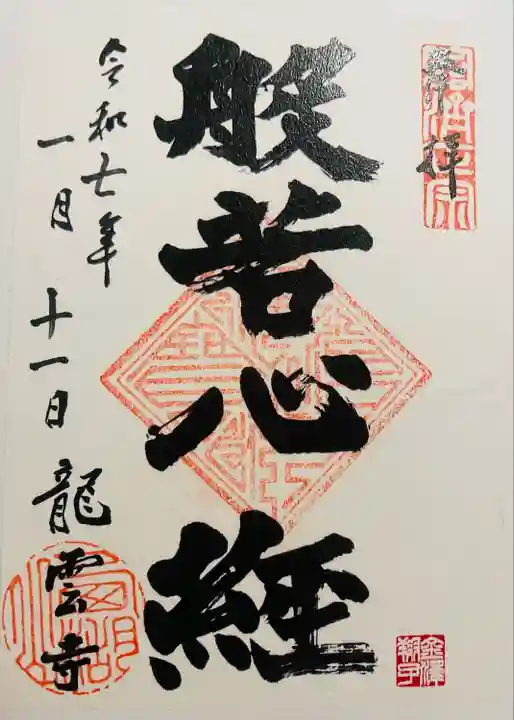 奉拝
般若心経
令和七年
一月十一日
龍雲寺
金澤
翔子